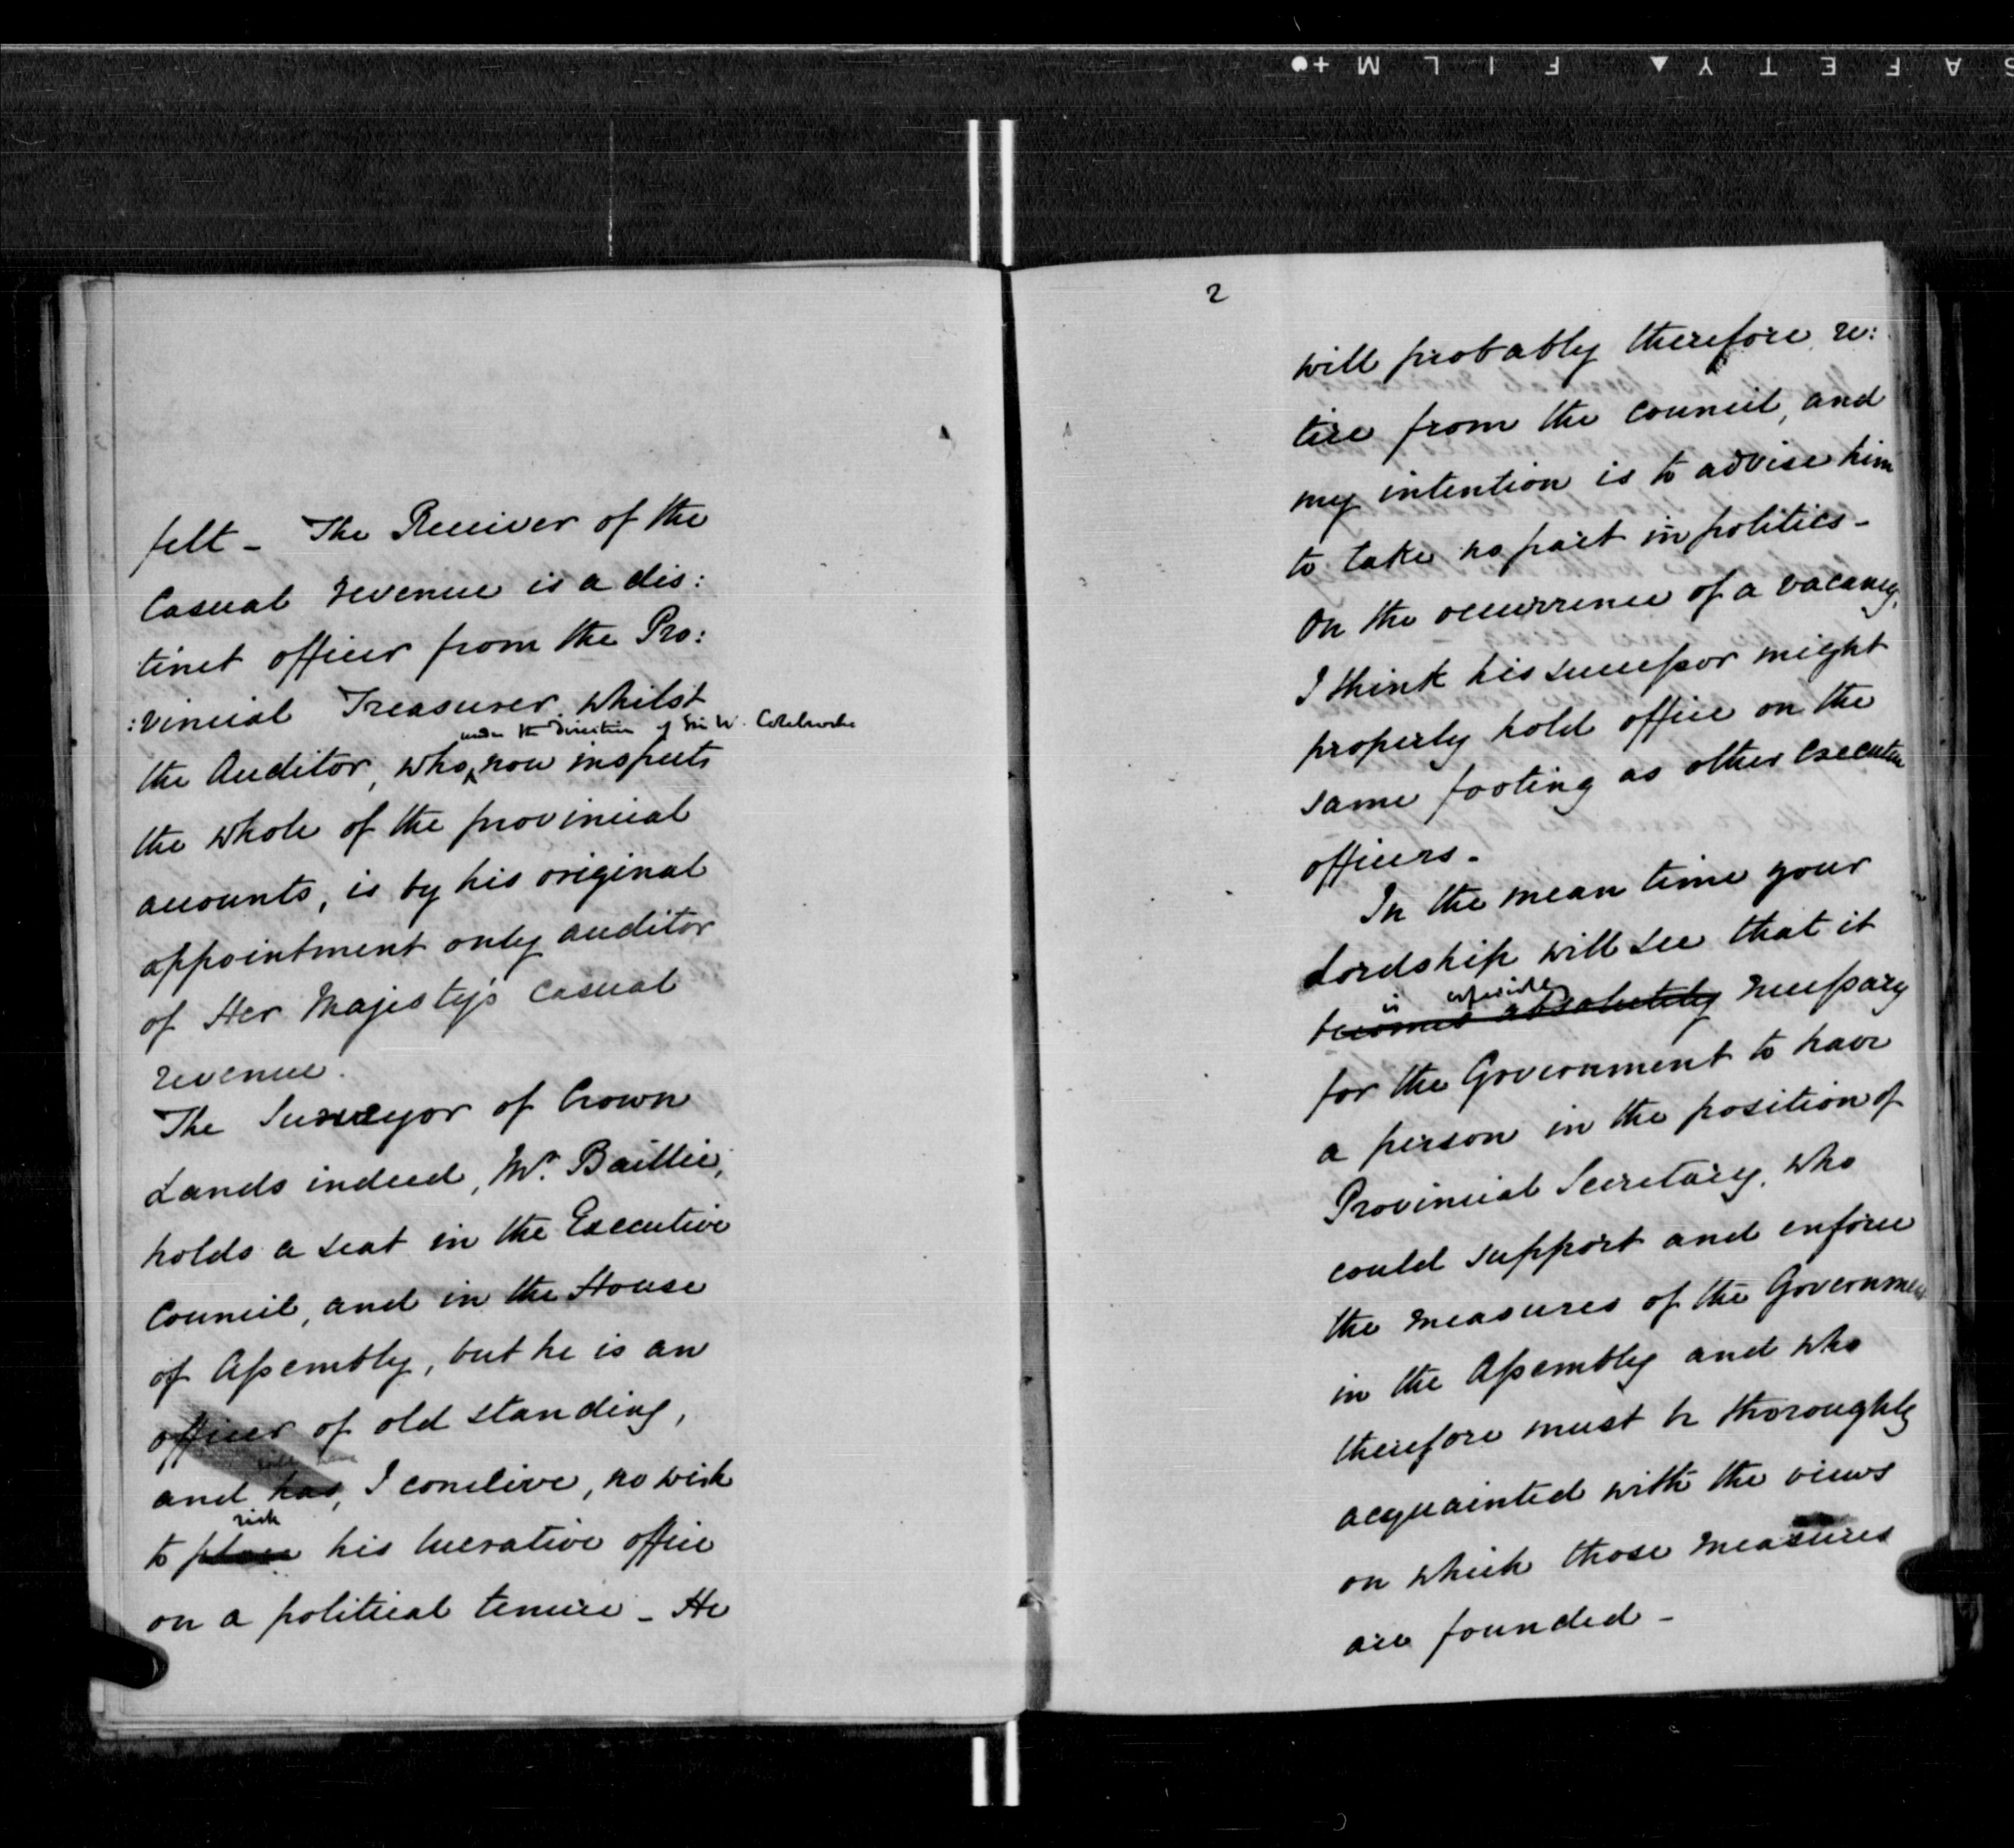 felt - The Receiver of the
Casual revenue is a dis:
tinct officer from the Pro:
:vincial Treasurer, whilst
under the direction of Sir W. Colebrooke
the Auditor, who now inspects
the whole of the provincial
accounts, is by his original
appointment only auditor
of Her Majesty's Casual
revenue.
The Surveyor of Crown
Lands indeed, Mr. Baillie,
holds a seat in the Executive
Council, and in the House
of Assembly, but he is an
officer of old standing,
will have
and has, I conceive, no wish
risk
to place his lucrative office
on a political tenure - He
2
will probably therefore re:
tire from the Council, and
my intention is to advise him
to take no part in politics -
On the occurrence of a vacancy,
I think his successor might
properly hold office on the
same footing as other executive
officers -
In the mean time your
Lordship will see that it
is especially
becomes absolutely necessary
for the Government to have
a person in the position of
Provincial Secretary, who
could support and enforce
the measures of the Government
in the Assembly and who
therefore must be thoroughly
acquainted with the views
on which those measures
are founded -
SAFETY FILM